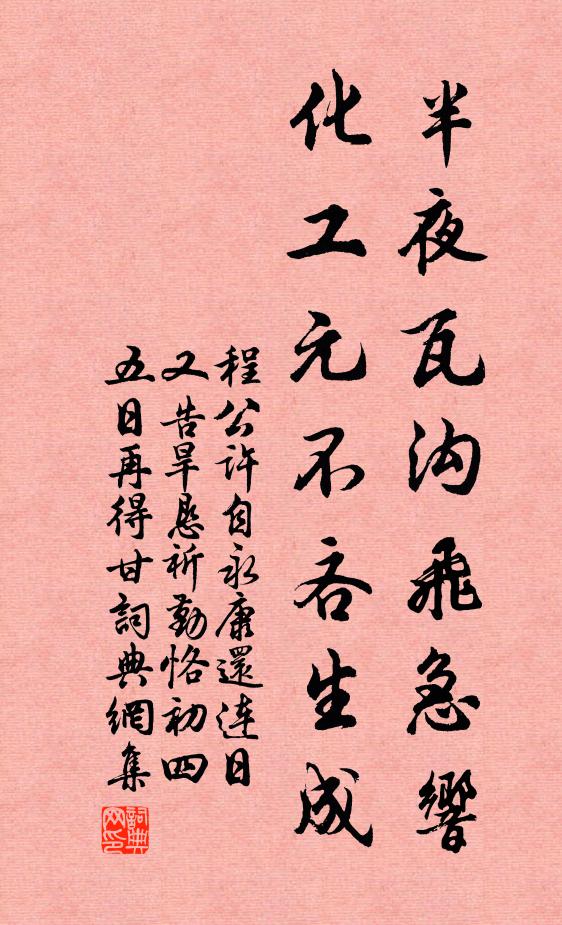 半夜瓦沟飛急響
化工元不吝生成
程公许自永康還连日
又告旱恳祈勤恪初四
五日再得甘詞典網集
詞典网印